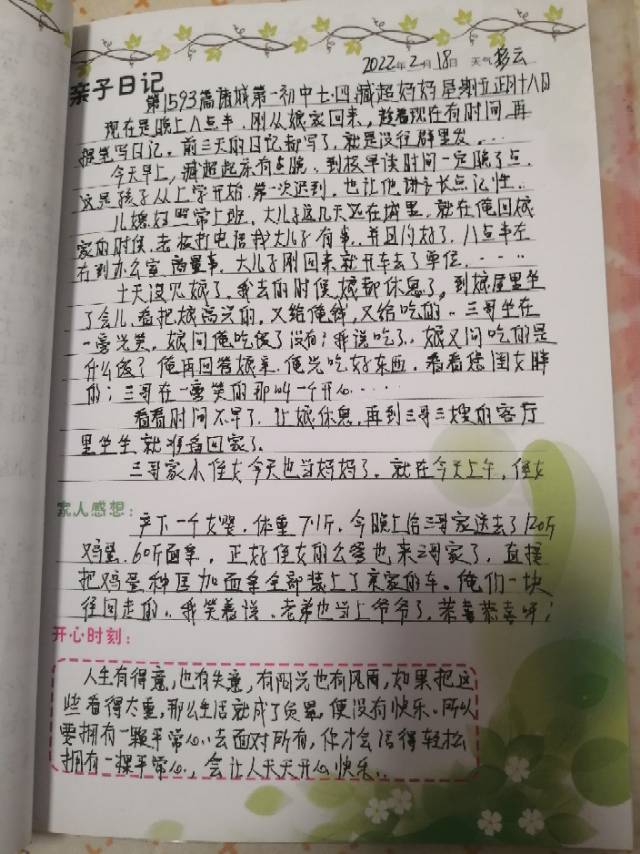 2022年2月18日 天气多云
亲子日记
第1593篇诸城第一初中七.四.臧超妈妈星期五正月十八日
现在是晚上八点半.刚从娘家回来,趁着现在有时间,再
提笔写日记。前三天的日记都写了.就是没往群里发...
今天早上,臧超起床有点晚.到校早读时间一定晚了点.
这是孩子从上学开始.第一次迟到,也让他讲方长点记性.
儿媳妇照常上班.大儿子这几天还在城里.就在俺回娘
家的时候.老板打电话找大儿子有事.并且约好了.八点半左
右到办公室商量事.大儿子刚回来就开车去了单位.....
十天没见娘了.我去的时候娘都休息了,到娘屋里坐
了会儿.看把娘高兴的,又给俺钱,又给吃的..三哥坐在
一旁光笑,娘问俺吃饭了没有?我说吃了..娘又问吃的是
什么饭?俺再回答娘亲.俺光吃好东西.看看您闺女胖
的;三哥在一旁笑的那叫一个开心.....
看看时间不早了.让娘休息,再到三哥三嫂的客厅
里坐坐就准备回家了.
三哥家小侄女今天也当妈妈了.就在今天上午.侄女
家人感想:
产下一个女婴.体重7.1斤.今晚上给三哥家送去了120斤
鸡蛋.60斤面条,正好侄女的公爹也来三哥家了,直接
把鸡蛋 加面条全部装上了亲家的车.俺们一块
往回走的..我笑着说.老弟也当上爷爷了.恭喜恭喜呀!
开心时刻:
人生有得意,也有失意,有阳光也有风雨,如果把这
些看得太重,那么生活就成了负累,便没有快乐.所以
要拥有一颗平常心.去面对所有,你才会活得轻松
拥有一棵平常心,会让人天天开心快乐..